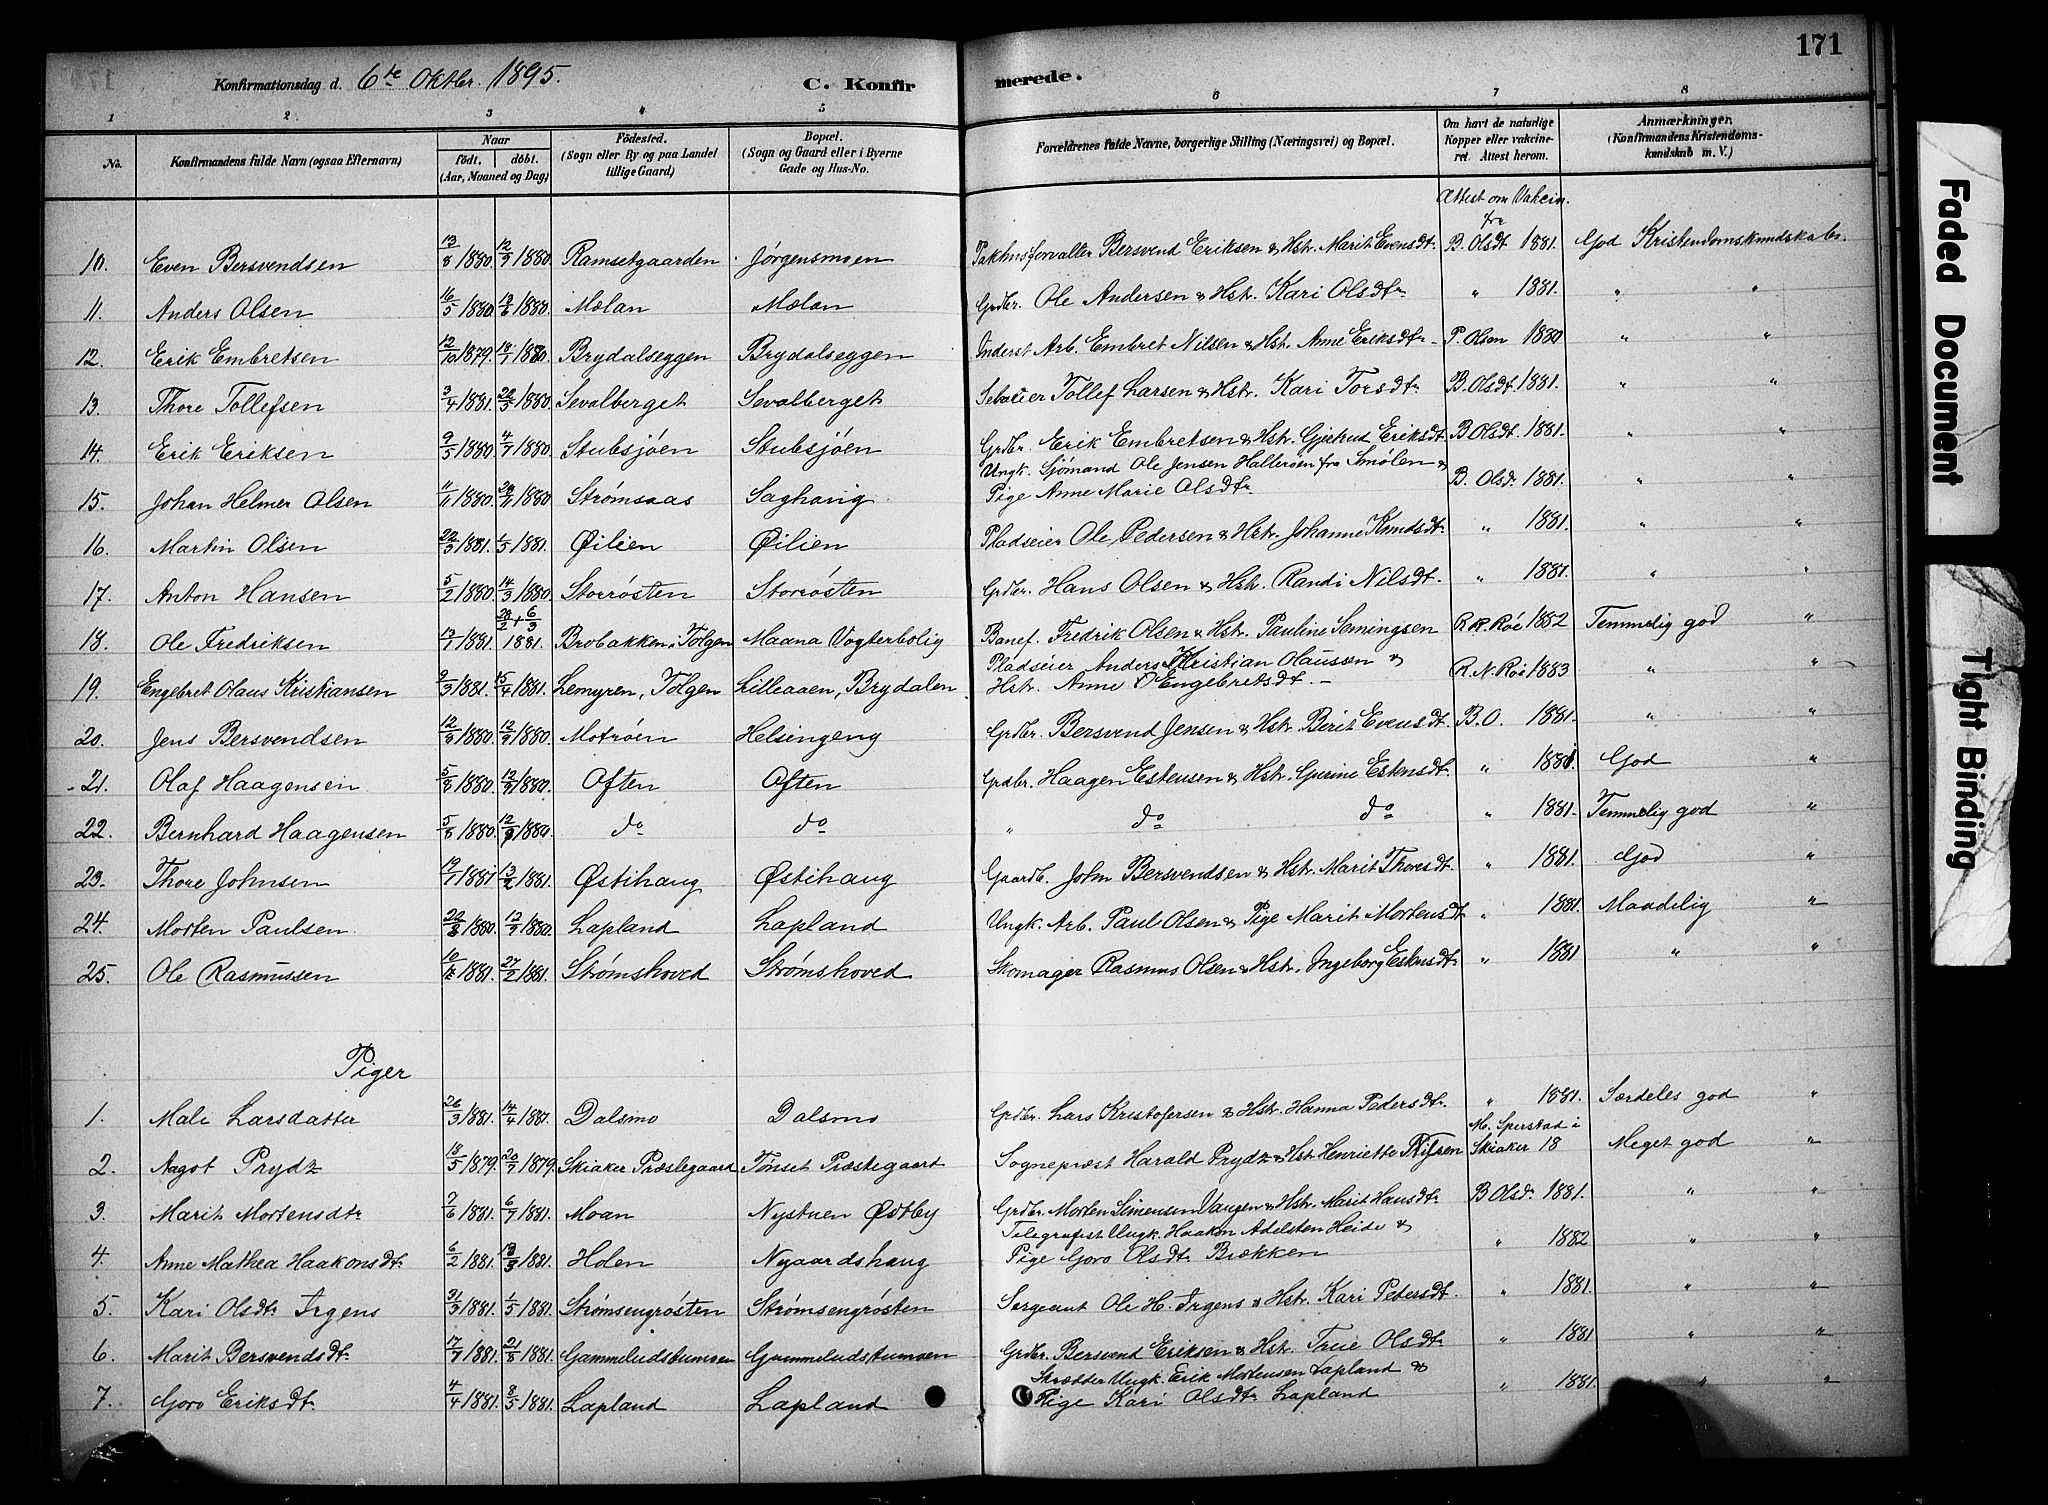 171
Konfirmationsdag d. 6te Oktbr. 1895. C. Konfirmerede.
1 2 3 4 5 6 7 8
No. Konfirmandens fulde Navn (ogsaa Efternavn) Naar födt, döbt. (Aar, Maaned og Dag) Födested. (Sogn eller By og paa Landet tillige Gaard) Bopæl. (Sogn og Gaard eller i Byerne Gade og Hus-No. Forældrenes fulde Navne, borgerlige Stilling (Næringsvei) og Bopæl. Om havt de naturlige Kopper eller vakcineret. Attest herom. Anmærkninger. (Konfirmandens Kristendomskundskab m. V.)
Attest om Vakcin. fra
10. Even Bersvendsen 13/8 1880. 12/9 1880. Ramsetgaarden Jørgensmoen Pakhusforvalter Bersvend Eriksen & Hstr. Marit Evensdt. B. Olsdt 1881. God Kristendomskundskab.
11. Anders Olsen 16/5 1880. 13/6 1880. Molan Molan Grdbr. Ole Andersen & Hstr. Kari Olsdtr " 1881. " "
12. Erik Embretsen 12/10 1879. 18/1 1880. Brydalseggen Brydalseggen Inderst Arb. Embret Nilsen & Hstr. Anne Eriksdtr P. Olsen 1880 " "
13. Thore Tollefsen 3/4 1881. 22/5 1880. Sevalberget Sevalberget Tollef Larsen & Hstr. Kari Torsdtr B. Olsdt 1881. " "
14. Erik Eriksen 9/5 1880. 4/7 1880. Stubsjøen Stubsjøen Grdbr. Erik Embretsen & Hstr. Gjertrud Eriksdt. B Olsdt. 1881. " "
15. Johan Helmer Olsen 11/11 1880. 28/11 1880. Strømsaas Saghaug Ungk. Sjømand Ole Jensen Hallerøen fra Smølen & Pige Anne Marie Olsdtr B. Olsd. 1881. " "
16. Martin Olsen 22/3 1881. 1/5 1881. Øilien Øilien Pladseier Ole Pedersen & Hstr. Johanne Knudsdtr " 1881. " "
17. Anton Hansen 5/2 1880. 14/3 1880. Storrøsten Storrøsten Grdbr. Hans Olsen & Hstr. Randi Nilsdt. " 1881. " "
18. Ole Fredriksen 13/1 1881. 28/2 + 6/3 1881. Brobakken, Tolgen Maana Vogterbolig Banef. Fredrik Olsen & Hstr. Pauline Semingsen R. N. Røe 1882 Temmelig god "
19. Engebret Olaus Kristiansen 9/3 1881. 15/4 1881. Lemyren, Tolgen Lilleaaen, Brydalen Pladseier Anders Kristian Olaussen & Hstr. Anne Engebretsdt. R. N. Røe 1883 " "
20. Jens Bersvendsen 12/8 1880. 12/9 1880. Motrøen Helsingeng Grdbr. Bersvend Jensen & Hstr. Berit Evensdt. B. O. 1881. " "
21. Olaf Haagensen 5/8 1880. 12/9 1880. Often Often Grdbr. Haagen Estensen & Hstr. Gurine Estensdt. " 1881. God "
22. Bernhard Haagensen 5/8 1880. 12/9 1880. do do " do do " 1881. Temmelig god "
23. Thore Johnsen 19/1 1881 13/2 1881. Østihaug Østihaug Gaardb. John Bersvendsen & Hstr. Marit Thoresdt. " 1881. God "
24. Morten Paulsen 22/8 1880. 12/9 1880. Lapland Lapland Ungk. Arb. Paul Olsen & Pige Marit Mortensdt " 1881. Maadelig "
25. Ole Rasmussen 10/12 1881. 27/2 1881. Strømshoved Strømshoved Skomager Rasmus Olsen & Hstr. Ingeborg Estensdtr " 1881 " "
Piger
1. Mali Larsdatter 26/3 1881. 14/4 1881. Dalsmo Dalsmo Grdbr. Lars Kristofersen & Hstr. Hanna Pedersdtr. " 1881. Særdeles god "
2. Aagot Prydz 18/5 1879. 20/7 1879. Skiaker Præstegaard Tønset Præstegaard Sogneprest Harald Prydz & Hstr Henriette M. Sperstad i Skiaker 18 Meget god "
3. Marit Mortensdtr 7/6 1881. 6/7 1881. Moan Nystuen Østby Grdbr. Morten Simensen Vangen & Hstr. Marit Hansdtr. B Olsd. 1881. " "
4. Anne Mathea Haakonsdtr. 6/2 1881. 13/3 1881. Holen Nygaardshaug Telegrafist Ungk. Haakon Adelsten Heide & Pige Goro Olsdtr Brækken " 1882 " "
5. Kari Olsdtr Irgens 31/3 1881. 1/5 1881. Strømsengrøsten Strømsengrøsten Sergeant Ole H. Irgens & Hstr. Kari Petersdt. " 1881. " "
6. Marit Bersvendsdtr. 17/7 1881. 21/8 1881. Gammeludstumoen Gammeludstumoen Grdbr. Bersvend Eriksen & Hstr. Truie Olsdtr " 1881 " "
7. Goro Eriksdt. 4/4 1881. 8/5 1881. Lapland Lapland Skrædder Ungk. Erik Mortensen Lapland & Pige Kari Olsdtr Lapland " 1881. " "
Faded Document
Tight Binding